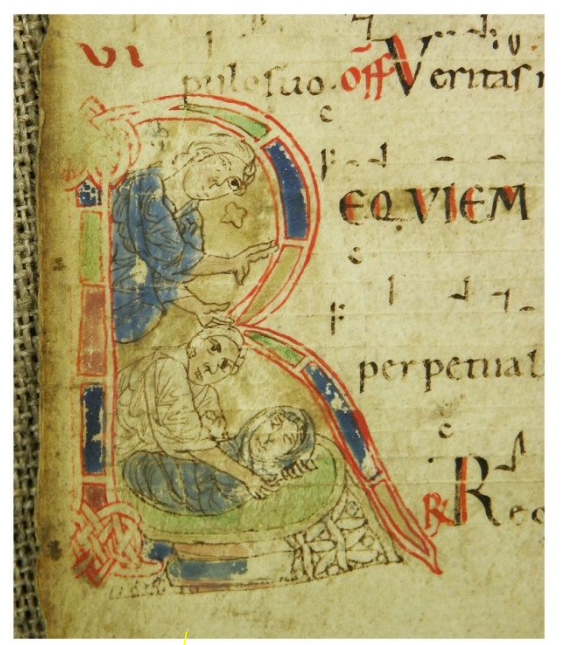 VI
pulo suo. off Veritas
R EQVIEM
perpetual
R Req